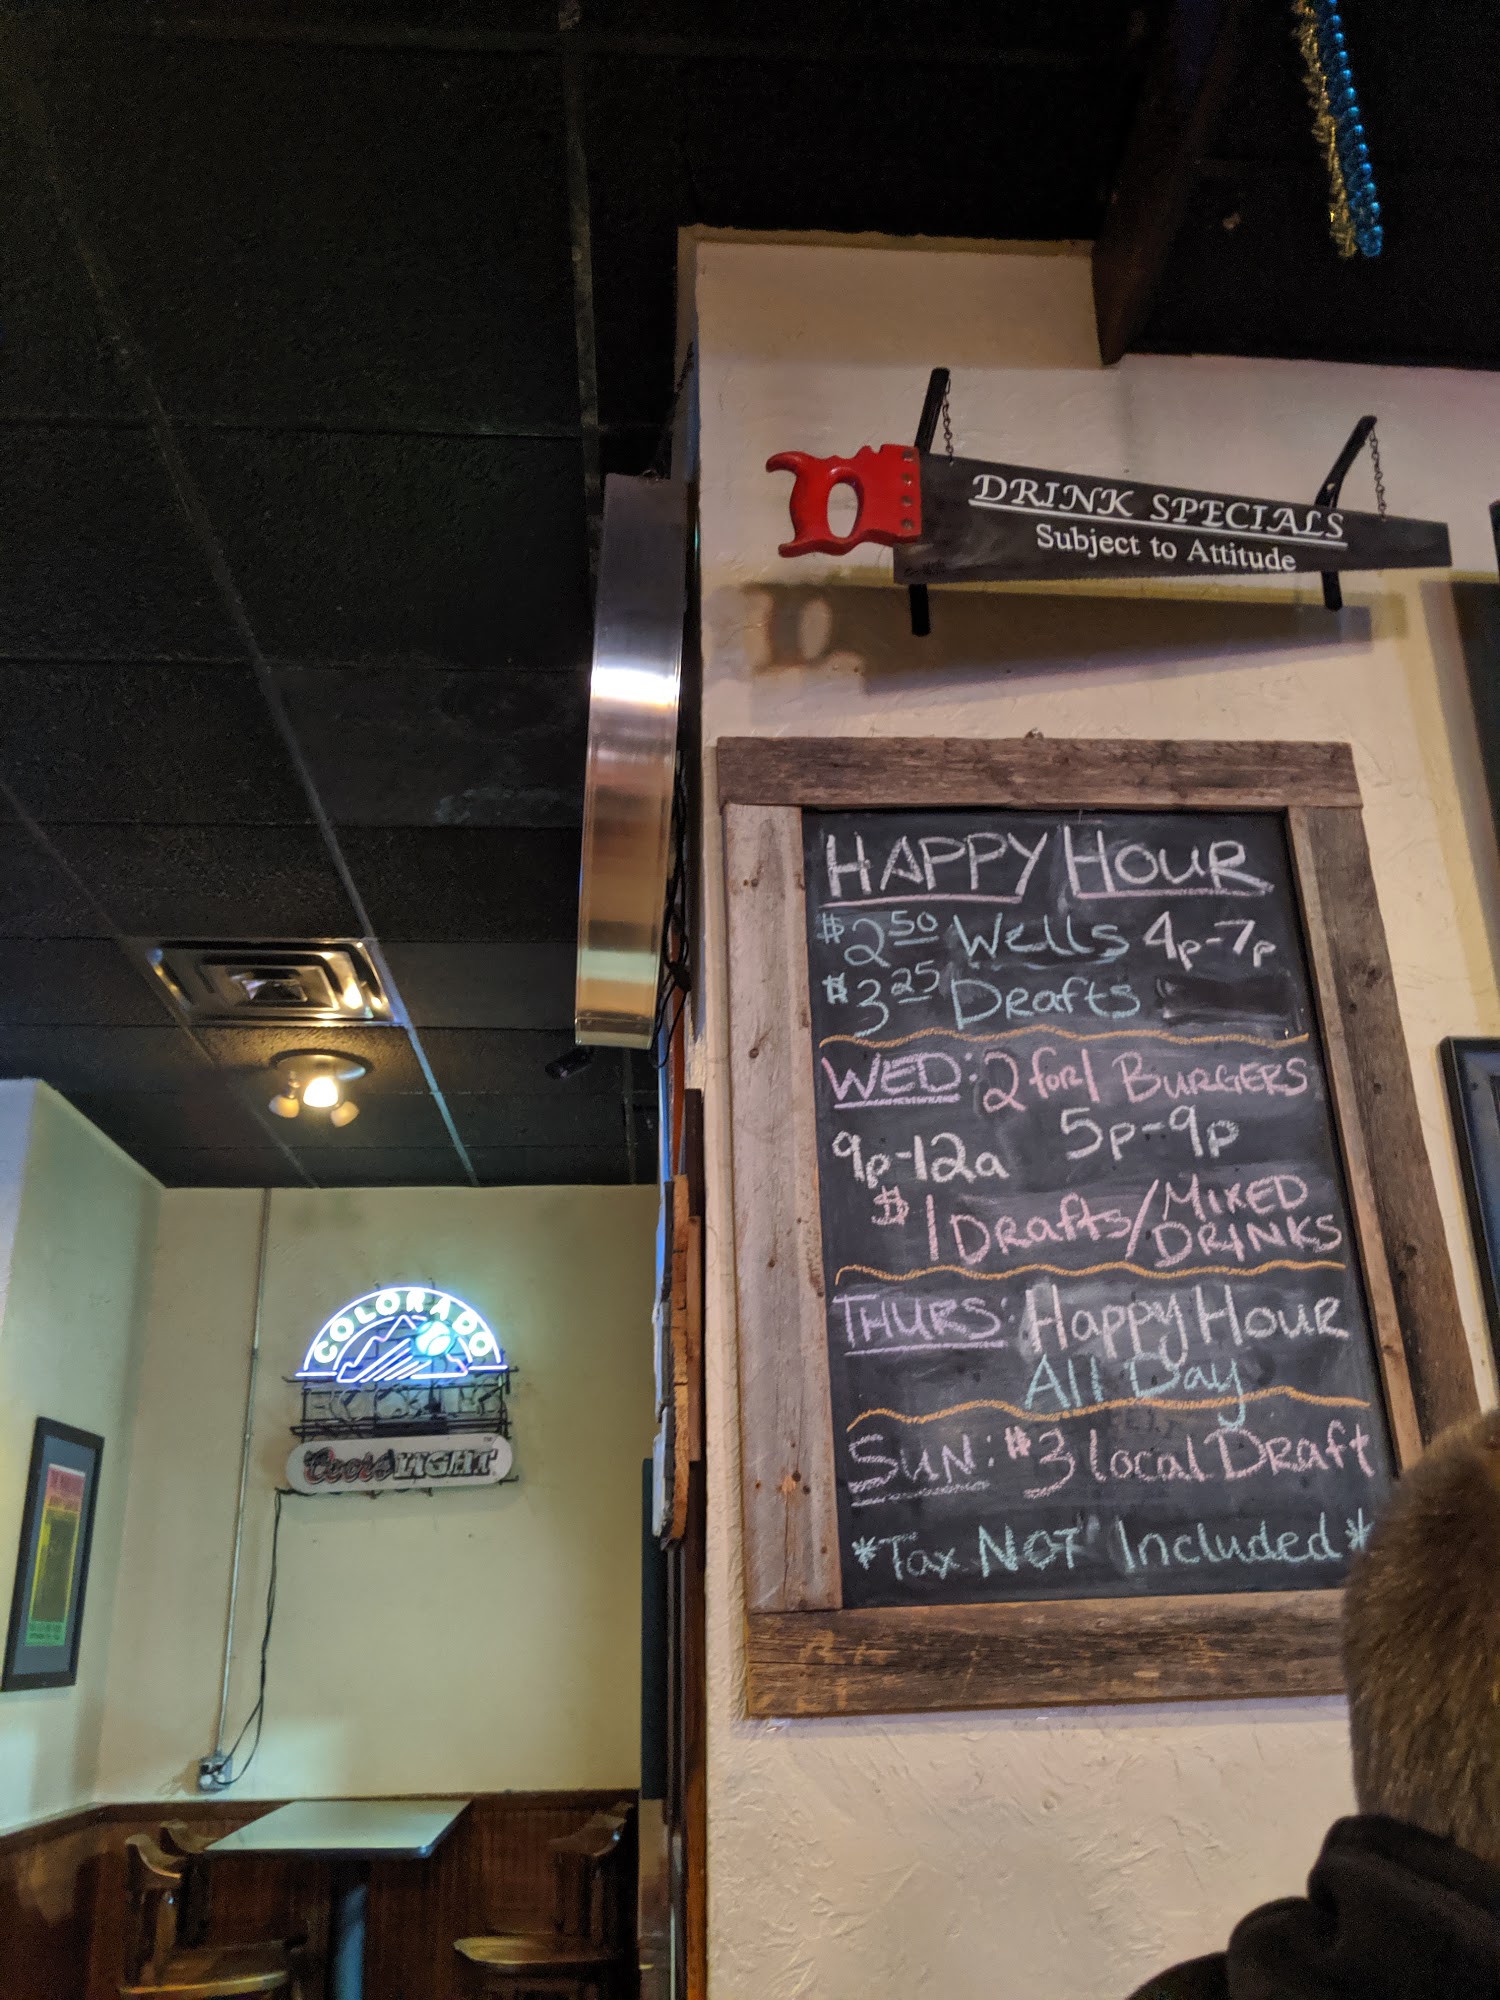 DRINK SPECIALS
Subject to Attitude
HAPPY HOUR
$2.50 Wells 4p-7p
$3.25 Drafts
WED: 2 for 1 BURGERS
5p-9p
9p-12a
$1 Drafts/MIXED DRINKS
THURS: Happy Hour
All Day
SUN: $3 local Draft
*Tax NOT Included*
COLORADO
ROCKIES
Coors LIGHT